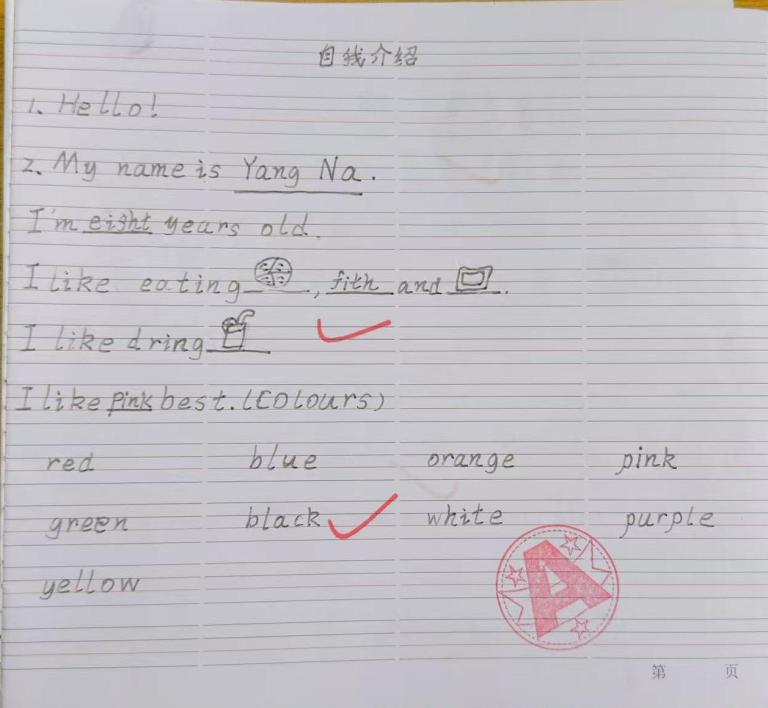 自我介绍
1. Hello!
2. My name is Yang Na.
I'm eight years old.
I like eating , fith and .
I like dring
I like pink best. (Colours)
red blue orange pink
green black white purple
yellow
A
第 页